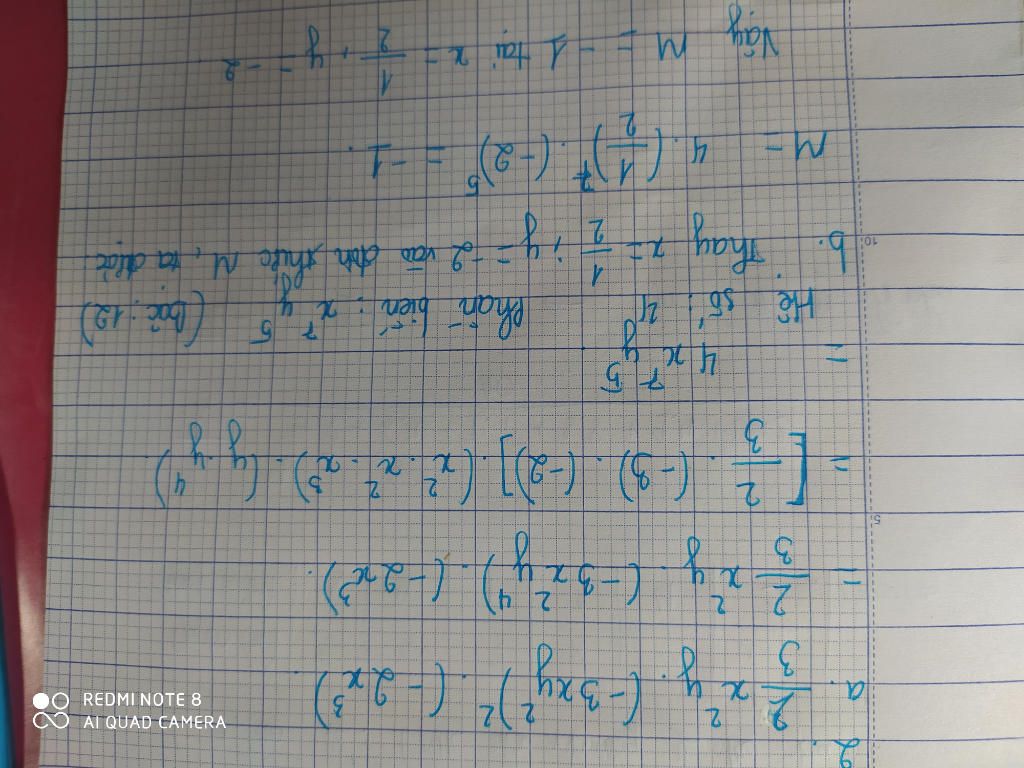 2.
a. 2/3 x² y . (-3xy²)² . (-2x³).
= 2/3 x² y . (-3x² y⁴) . (-2x³).
= [2/3 . (-3) . (-2)] . (x² . x² . x³) . (y . y⁴).
= 4 x⁷ y⁵.
Hệ số: 4 Phần biến: x⁷ y⁵ (Bậc: 12)
b. Thay x = 1/2, y = -2 vào đơn thức M, ta được:
M = 4 . (1/2)⁷ . (-2)⁵ = -1.
Vậy M = -1 tại x = 1/2, y = -2
5
10
REDMI NOTE 8
AI QUAD CAMERA